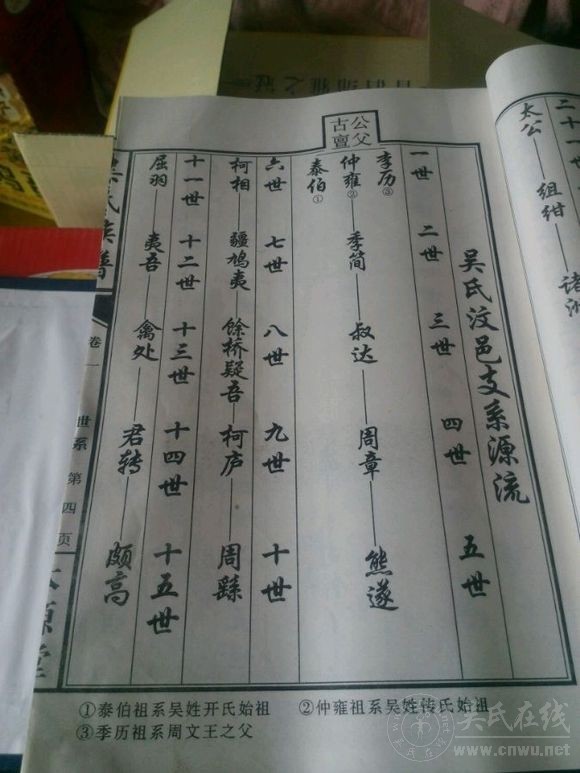 二十一世
太公——组绀——诸
吴氏汶邑支系源流
一世 二世 三世 四世 五世
古公
亶父
季历③
仲雍②——季简——叔达——周章——熊遂
泰伯①
六世 七世 八世 九世 十世
柯相——疆鸠夷——餘桥疑吾——柯庐——周繇
十一世 十二世 十三世 十四世 十五世
屈羽——夷吾——禽处——君转——颇高
氏族谱 卷一 世系 第四页
①泰伯祖系吴姓开氏始祖 ②仲雍祖系吴姓传氏始祖
③季历祖系周文王之父
吴氏在线
www.cnwu.net